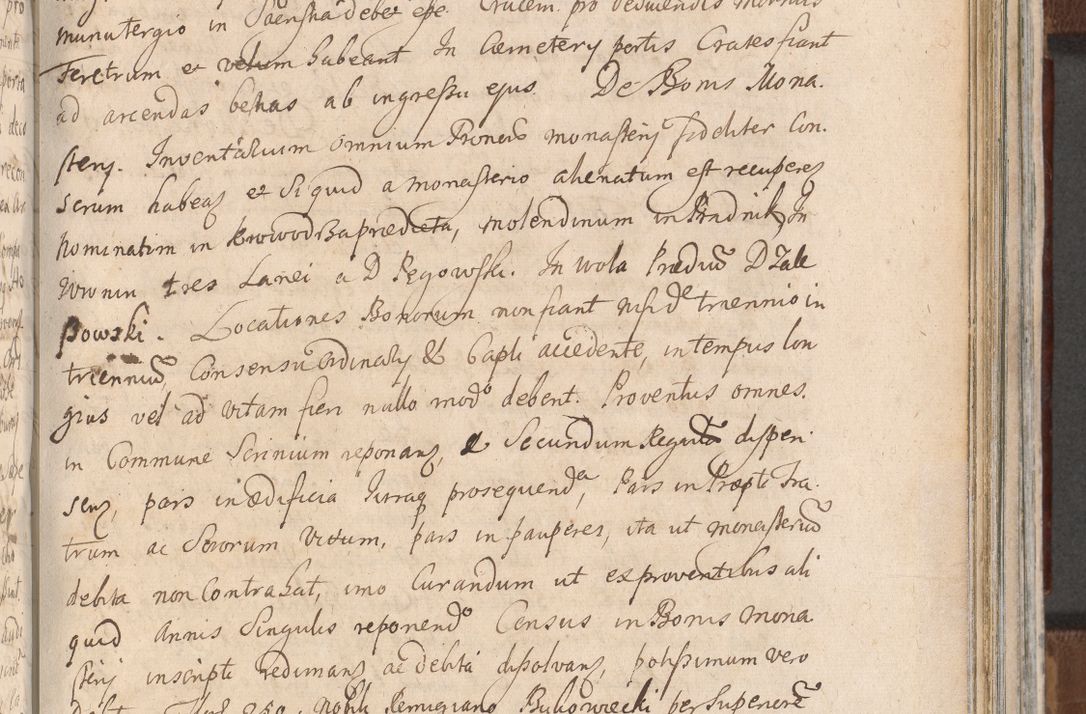 munutergio in debet esse Crucem pro deducendis mortuis
Feretrum et velum habeant In Cæmetery portis Crates fiant
ad arcendas bestias ab ingressu ejus. De Bonis Mona.
sterij. Inventarium omnium Bonorũ monasterij fideliter Con.
Scrum habeaʒ et Si quid a monasterio alienatum est recupereʒ
Nominatim in krowodrza prædicta, molendinum in Prądnik, In
Wronin tres Lanei a D Pęgowski. In wola Prædiũ D Zale
powski. Locationes Bonorum non fiant nisi de triennio in
trienniũ, Consensu Ordinarij & Capli accedente, in tempus lon
gius vel ad vitam fieri nullo modo debent. Proventus omnes.
in Commune Scrinium reponanʒ, & Secundum Regulã dispen
senʒ, pars in ædificia prosequenda, Pars in Præpti Fra.
trum ac Sororum victum, pars in pauperes, ita ut monasteriũ
debita non Contrahat, imo Curandum ut ex proventibus ali
quid Annis Singulis reponendo Census in Bonis Mona
sterij inscripti redimanʒ ac debita dissolvanʒ, potissimum vero
Nobili Remigiano Bukowiecki per Superiorẽ